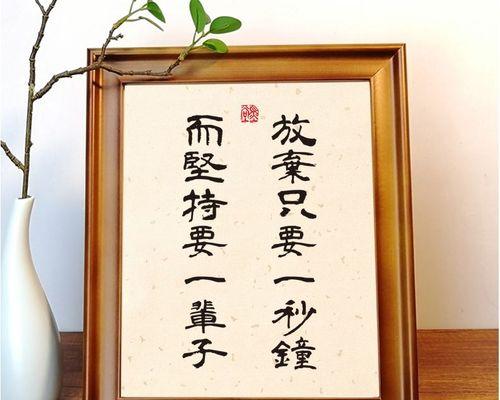 放棄只要一秒鐘
而堅持要一輩子